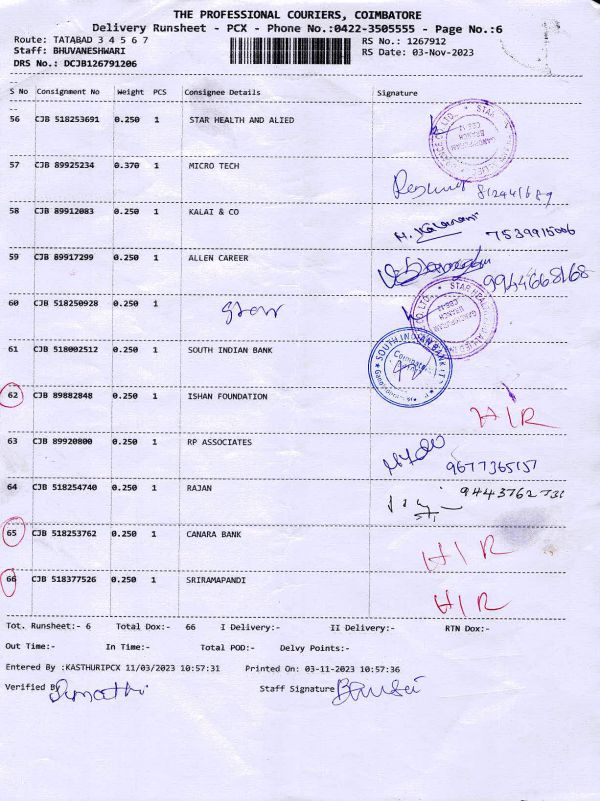 THE PROFESSIONAL COURIERS, COIMBATORE
Delivery Runsheet - PCX - Phone No.:0422-3505555 - Page No.:6
Route: TATABAD 3 4 5 6 7
RS No.: 1267912
Staff: BHUVANESHWARI
RS Date: 03-Nov-2023
DRS No.: DCJB126791206
S No Consignment No Weight PCS Consignee Details Signature
56 CJB 518253691 0.250 1 STAR HEALTH AND ALIED
57 CJB 89925234 0.370 1 MICRO TECH
58 CJB 89912083 0.250 1 KALAI & CO 7539915006
59 CJB 89917299 0.250 1 ALLEN CAREER 9944668168
60 CJB 518250928 0.250 1 Star
61 CJB 518002512 0.250 1 SOUTH INDIAN BANK
SOUTH INDIAN BANK
62 CJB 89882848 0.250 1 ISHAN FOUNDATION HIR
63 CJB 89920800 0.250 1 RP ASSOCIATES 9677365151
64 CJB 518254740 0.250 1 RAJAN 9443762731
65 CJB 518253762 0.250 1 CANARA BANK HIR
66 CJB 518377526 0.250 1 SRIRAMAPANDI HIR
Tot. Runsheet:- 6 Total Dox:- 66 I Delivery:- II Delivery:- RTN Dox:-
Out Time:- In Time:- Total POD:- Delvy Points:-
Entered By :KASTHURIPCX 11/03/2023 10:57:31 Printed On: 03-11-2023 10:57:36
Verified By Staff Signature